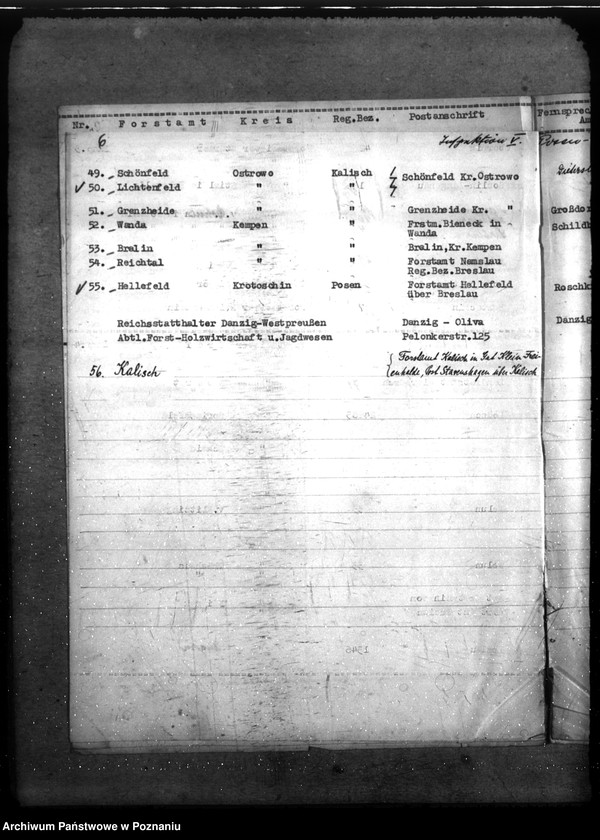 Nr. Forstamt Kreis Reg.Bez. Postanschrift Fernsprec
6 Inspektion V.
49. Schönfeld Ostrowo Kalisch Schönfeld Kr.Ostrowo
50. Lichtenfeld " "
51. Grenzheide " " Grenzheide Kr. " Großdor
52. Wanda Kempen " Frstm.Bieneck in Schildb
Wanda
53. Bralin " " Bralin,Kr.Kempen
54. Reichtal " " Forstamt Namslau
Reg.Bez.Breslau
55. Hellefeld Krotoschin Posen Forstamt Hellefeld Roschk
über Breslau
Reichsstatthalter Danzig-Westpreußen Danzig - Oliva Danzig
Abtl.Forst-Holzwirtschaft u.Jagdwesen Pelonkerstr.125
56. Kalisch Forstamt Kalisch in Gut Klein Frei-
über Kalisch
Archiwum Państwowe w Poznaniu